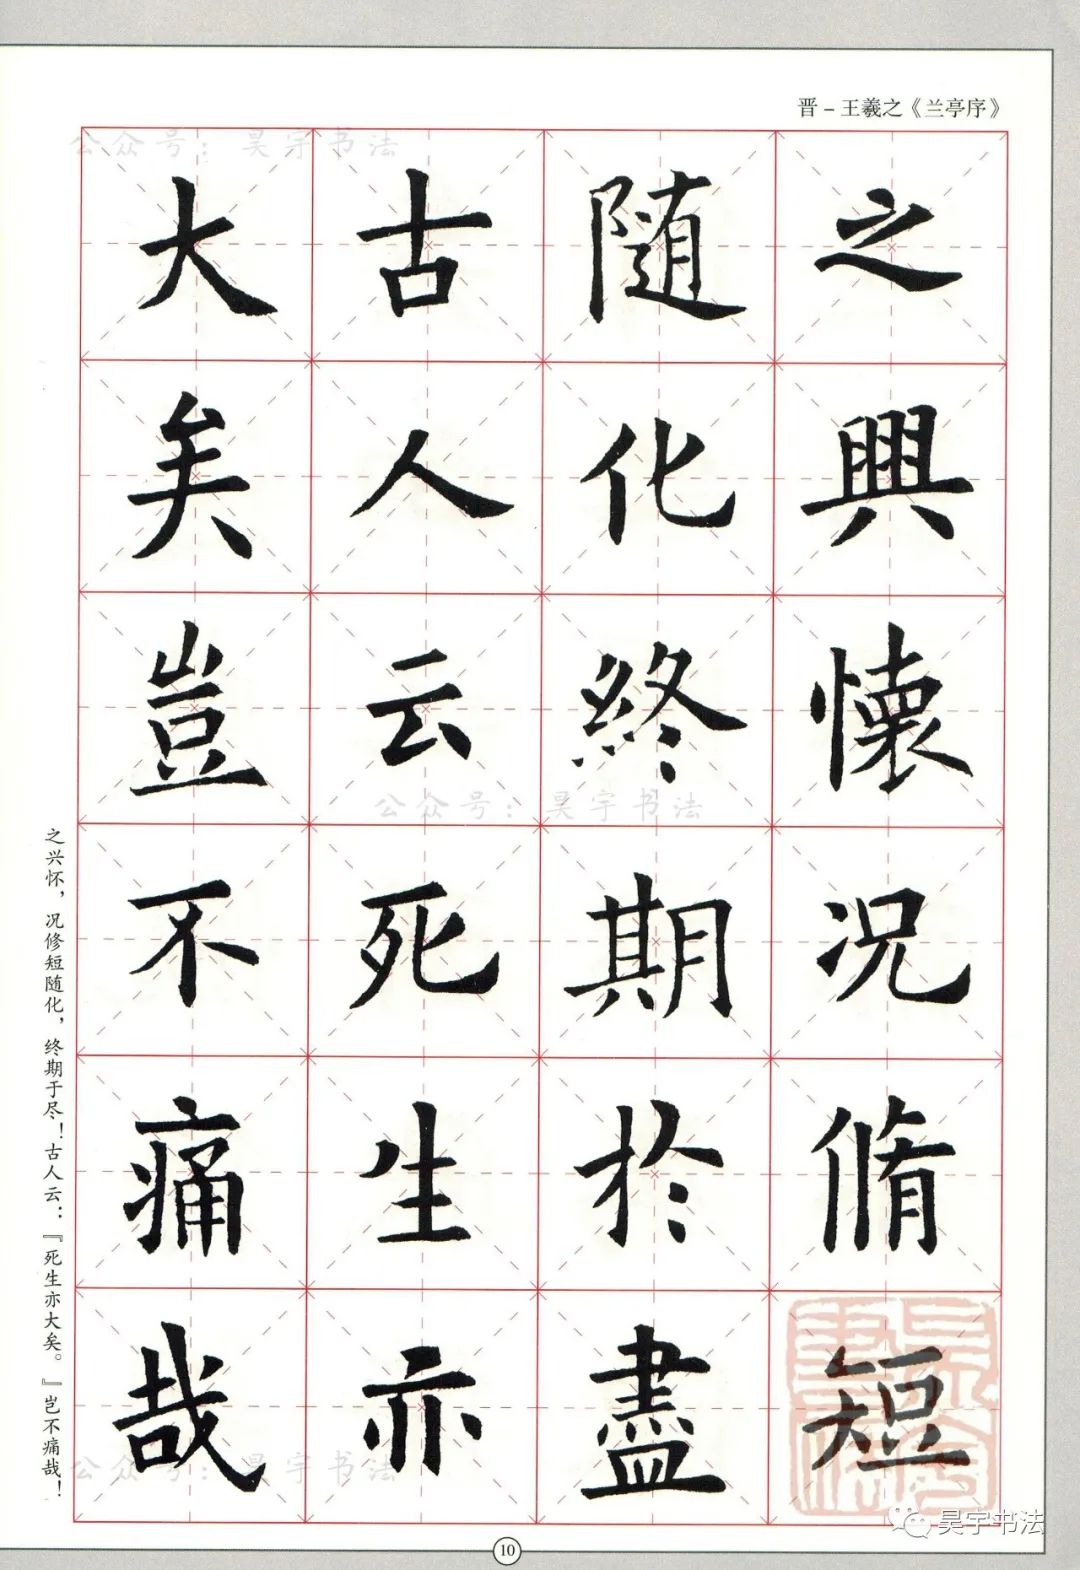 晋－王羲之《兰亭序》
之興懷況脩短
随化終期於盡
古人云死生亦
大矣豈不痛哉
之兴怀，况修短随化，终期于尽！古人云：『死生亦大矣。』岂不痛哉！
公众号：昊宇书法
公众号：昊宇书法
公众号：昊宇书法
昊宇书法
昊宇书法
10